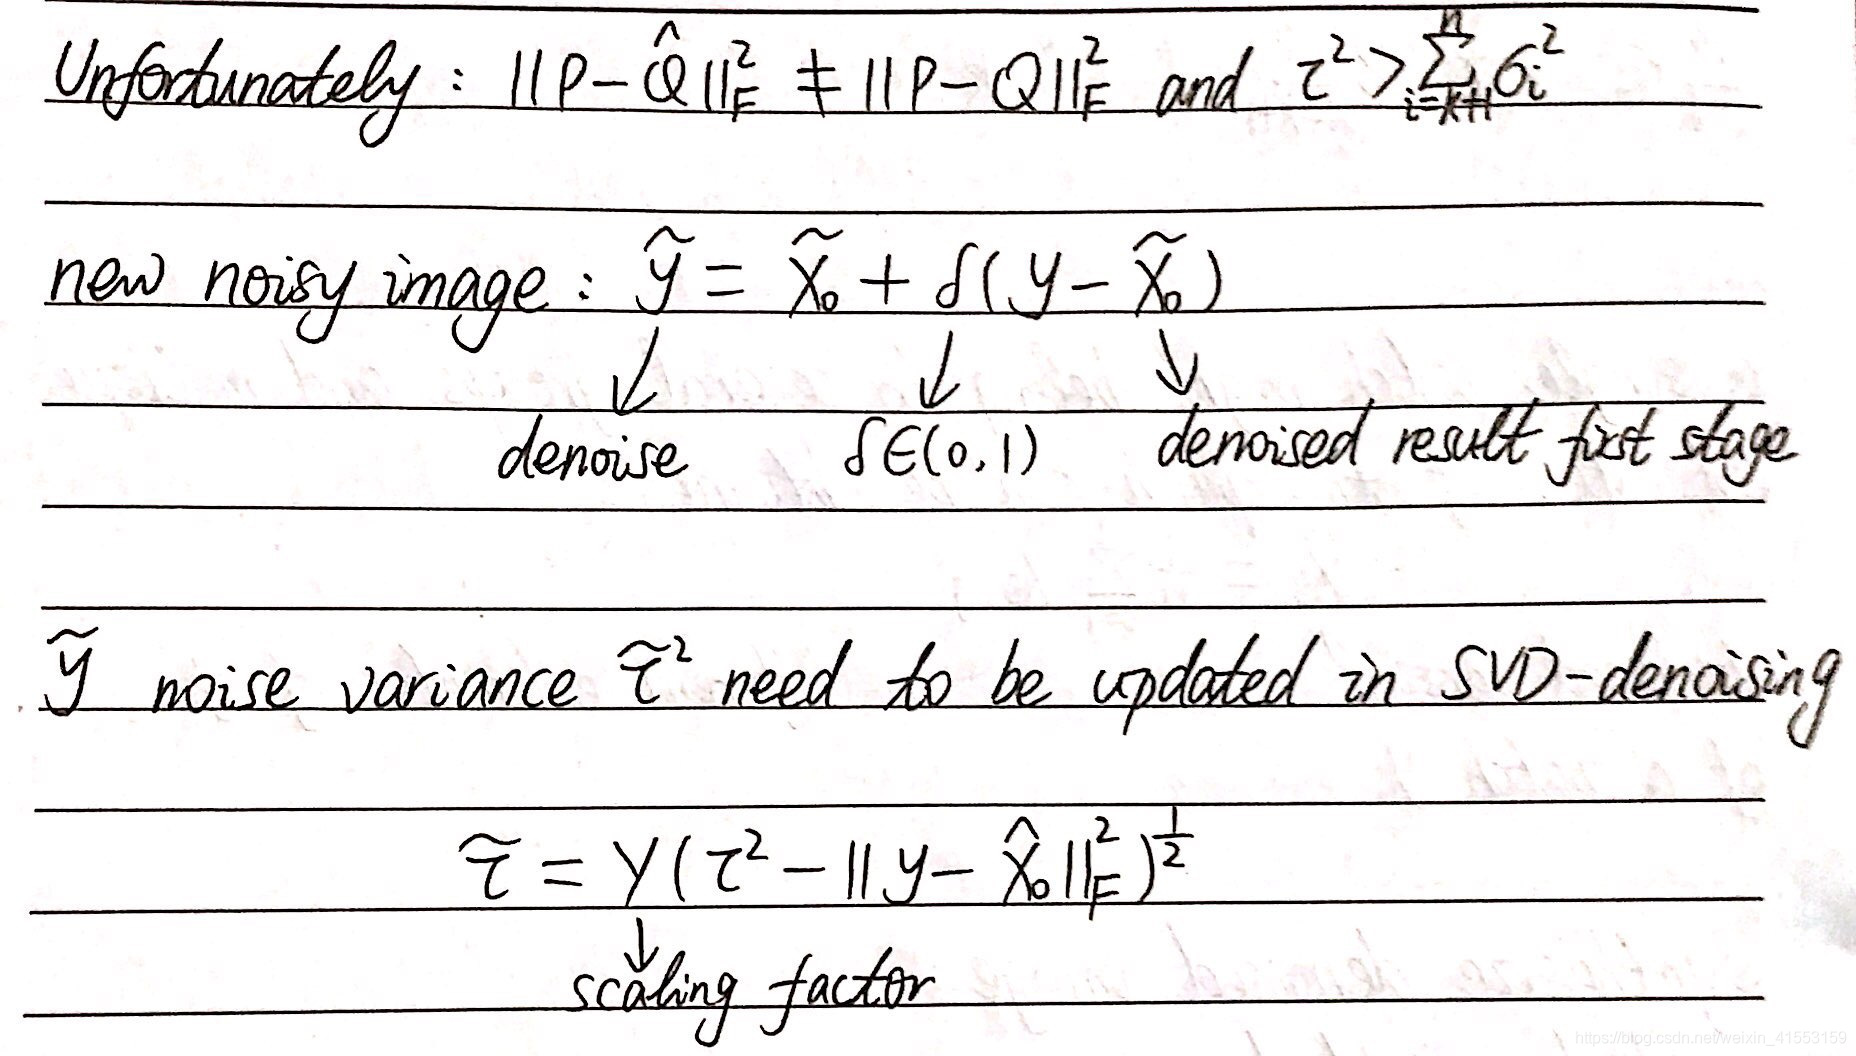 Unfortunately: ||P-Q̂||²_F ≠ ||P-Q||²_F and τ² > ∑_{i=k+1}^{n} σ_i²
new noisy image: ỹ = x̃₀ + δ(y - x̃₀)
denoise δ∈(0,1) denoised result first stage
ỹ noise variance τ̃² need to be updated in SVD-denoising
τ̃ = γ(τ² - ||y - x̂₀||²_F)^{1/2}
scaling factor
https://blog.csdn.net/weixin_41553159